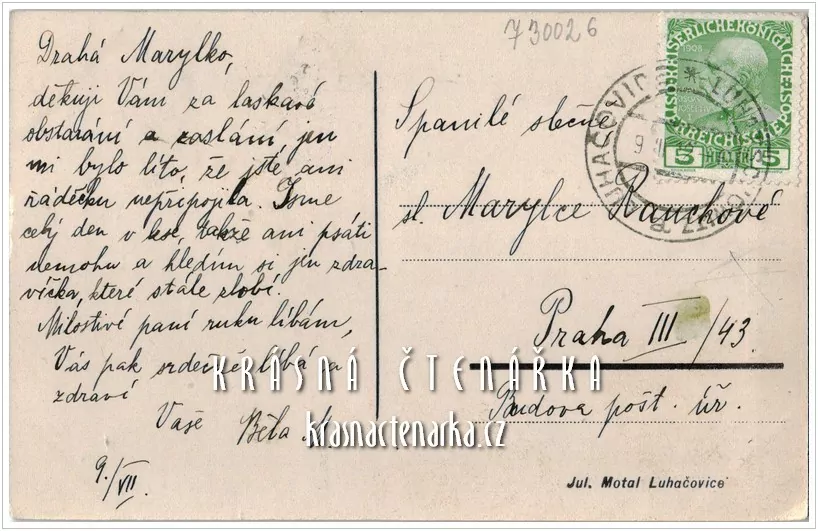 730026
Drahá Marylko,
děkuji Vám za laskavé
obstarání a zaslání, jen
mi bylo líto, že jste ani
řádečku nepřipojila. Jsme
celý den v lese, takže ani psáti
nemohu a hledím si jen zdra-
víčka, které stále zlobí.
Milostivé paní ruku líbám,
Vás pak srdečně líbá a
zdraví
Vaše Běla M.
9./VII.
1908
5 HELLER 5
LUHAČOVICE * LUHATSCHOWITZ
9
Spanilé slečně
sl Marylce Rauchové
Praha III/43.
Budova pošt. úř.
Jul. Motal Luhačovice
KRÁSNÁ ČTENÁŘKA
krasnactenarka.cz